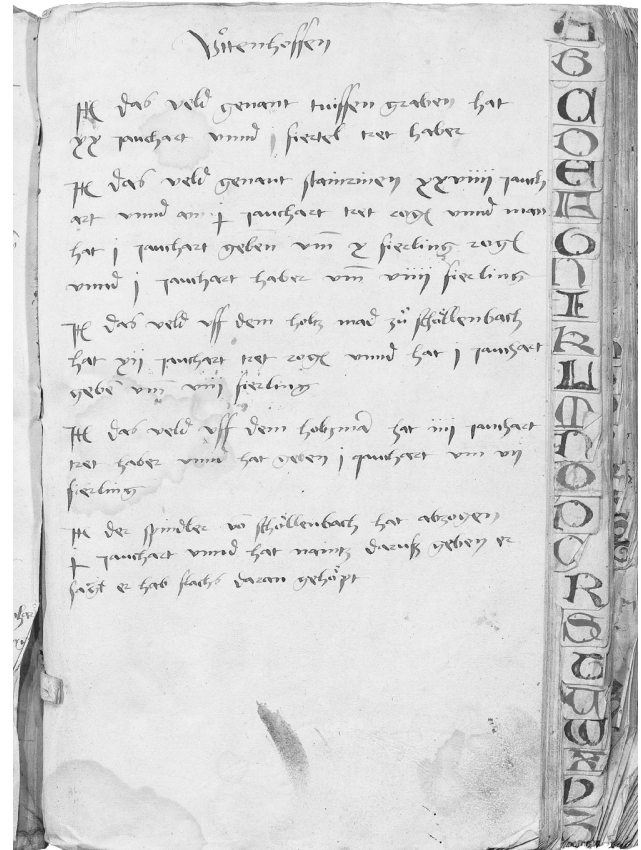 Vöttenhoffen
Itē das veld genant tuiffen graben hat
xx jauchart vnnd j fiertel tret haber
Itē das veld genant stainrinen xxviiii jauch
art vnnd ain ɉ jauchart tret rogē vnnd man
hat j jauchart geben vm̄ x fierling rogē
vnnd j jauchart haber vm̄ viiii fierling
Itē das veld vff dem holtz mad zů schöllenbach
hat xii jauchart tret rogē vnnd hat j jauchart
gebē vm̄ viii fierling
Itē das veld vff dem holtzmad hat iiii jauchart
tret haber vnnd hat geben j jauchart vm vii
fierling
Itē der spindler vō schöllenbach hat abzogen
ɉ jauchart vnnd hat naintz daruß geben er
sagt er hab flachs daran gehöpt
A
B
C
D
E
F
G
H
I
K
L
M
N
O
P
Q
R
S
T
V
W
X